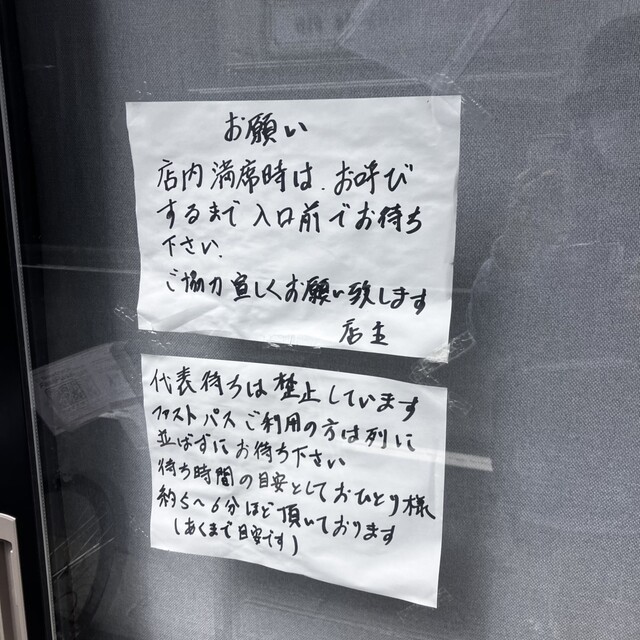 お願い
店内満席時は、お呼び
するまで入口前でお待ち
下さい.
ご協力宜しくお願い致します
店主
代表待ちは禁止しています
ファストパスご利用の方は列に
並ばずにお待ち下さい
待ち時間の目安としておひとり様
約5〜6分ほど頂いております
(あくまで目安です)